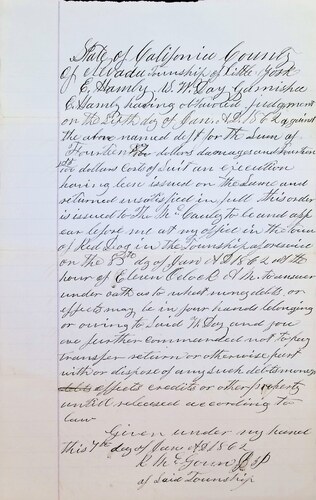 State of California County
of Nevada Township of Little York
E. Hamby vs W. Day Garnishee
E. Hamby having obtained judgment
on the day of Jan. A.D. 1862 against
the above named deft for the Sum of
Fourteen dollars damages and
dollars Costs of Suit an execution
having been issued on the Same and
returned unsatisfied in full this order
is issued to Tho Mc to be and app
ear before me at my office in the Town
of Red Dog in the Township aforesaid
on the 8th day of June A.D 1862 at the
hour of Eleven Oclock A.M. to answer
under oath as to what money debts or
effects may be in your hands belonging
or owing to Said W Day and you
are further commanded not to pay
transfer return or otherwise part
with or dispose of any such debts money
effects credits or other property
until released according to
law
Given under my hand
this 7th day of June A.D 1862
J P
of Said Township